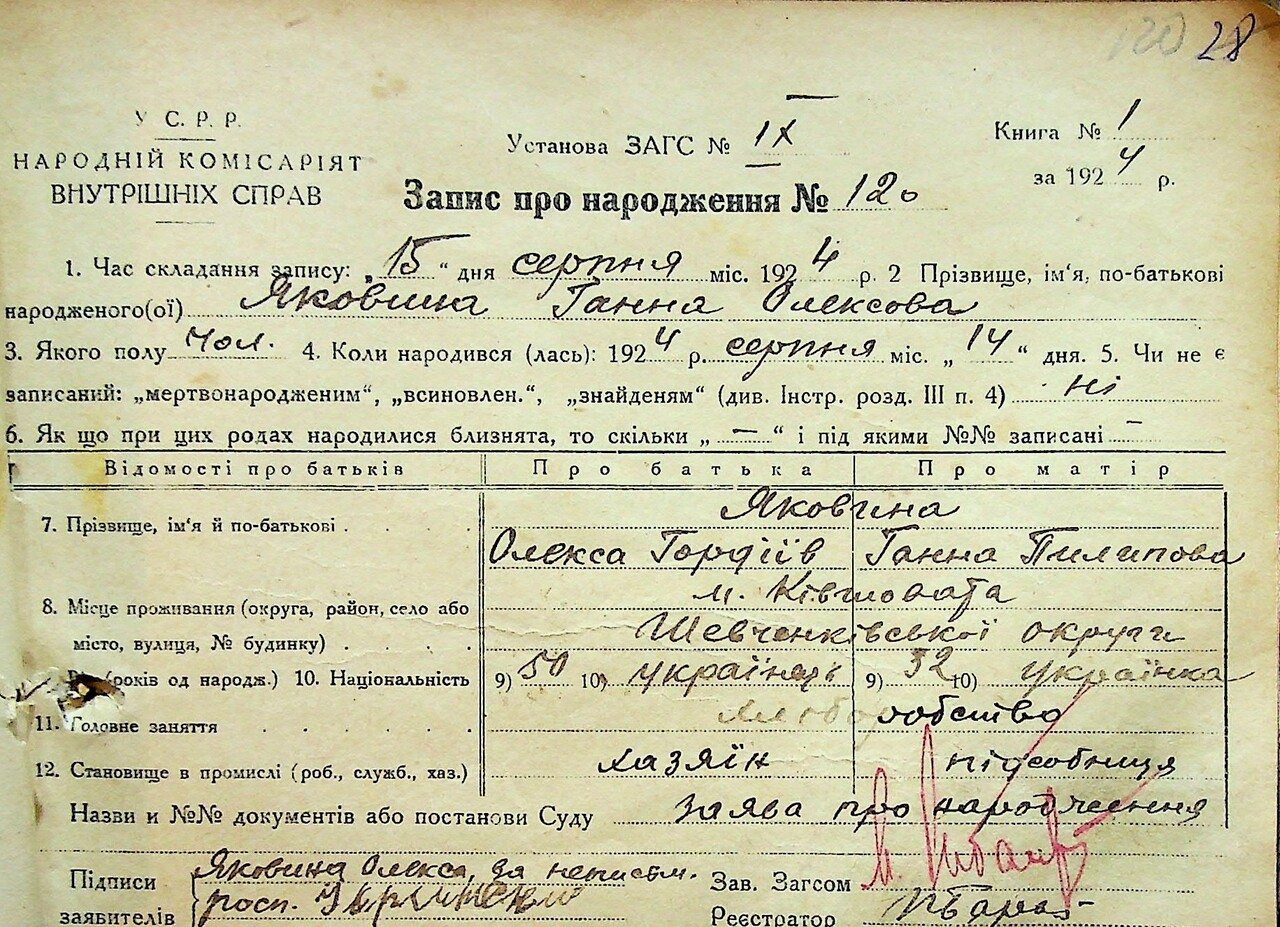 120 28
У С. Р. Р.
НАРОДНІЙ КОМІСАРІЯТ
ВНУТРІШНІХ СПРАВ
Установа ЗАГС № IX
Книга № 1
за 1924 р.
Запис про народження № 120
1. Час складання запису: „15“ дня серпня міс. 1924 р. 2 Прізвище, ім'я, по-батькові
народженого(ої) Яковина Ганна Олексова
3. Якого полу чол. 4. Коли народився (лась): 1924 р. серпня міс. „14“ дня. 5. Чи не є
записаний: „мертвонародженим“, „всиновлен.“, „знайденям“ (див. Інстр. розд. III п. 4) ні
6. Як що при цих родах народилися близнята, то скільки „—“ і під якими №№ записані —
Відомості про батьків Про батька Про матір
Яковина
7. Прізвище, ім'я й по-батькові
Олекса Гордіїв Ганна Пилипова
м. Ківшовата
8. Місце проживання (округа, район, село або
місто, вулиця, № будинку) Шевченківської округи
(років од народж.) 10. Національність 9) 50 10) українець 9) 32 10) українка
11. Головне заняття хліборобство
12. Становище в промислі (роб., служб., хаз.) хазяїн підсобниця
Назви и №№ документів або постанови Суду заява про народження
Підписи Яковина Олекса, за неписьм.
заявителів росп.
Зав. Загсом
Реєстратор